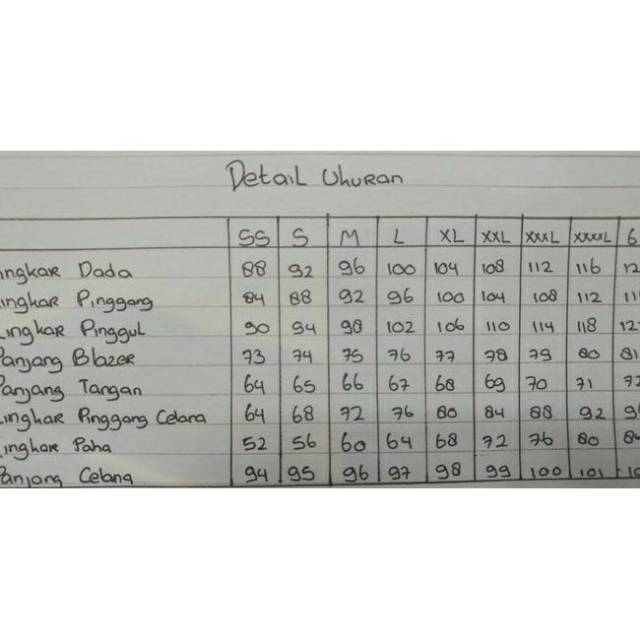 Detail Ukuran
SS S M L XL XXL XXXL XXXXL 6
ingkar Dada 88 92 96 100 104 108 112 116 12
ingkar Pinggang 84 88 92 96 100 104 108 112 11
ingkar Pinggul 90 94 98 102 106 110 114 118 12
anjang Blazer 73 74 75 76 77 78 79 80 81
anjang Tangan 64 65 66 67 68 69 70 71 72
ingkar Pinggang Celana 64 68 72 76 80 84 88 92 9
ingkar Paha 52 56 60 64 68 72 76 80 84
anjang Celana 94 95 96 97 98 99 100 101 10